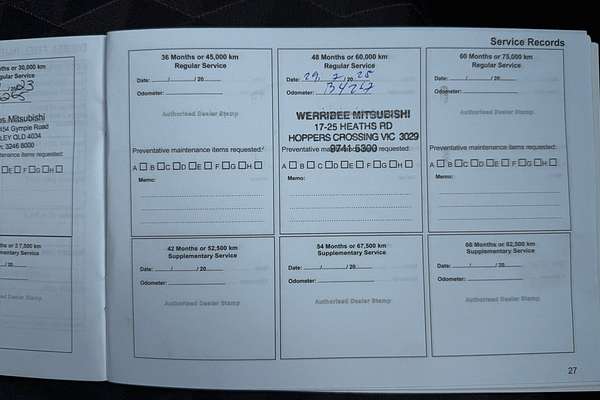 Service Records
30,000 km
Regular Service
Mitsubishi
454 Gympie Road
QLD 4034
3246 8000
maintenance items requested:
E F G H
37,500 km
Supplementary Service
/ 20
Dealer Stamp
36 Months or 45,000 km
Regular Service
Date: / / 20
Odometer:
Authorised Dealer Stamp
Preventative maintenance items requested:
A B C D E F G H
Memo:
48 Months or 60,000 km
Regular Service
Date: / / 20 25
Odometer:
WERRIBEE MITSUBISHI
17-25 HEATHS RD
HOPPERS CROSSING VIC 3029
Preventative maintenance 9741 5300 requested:
A B C D E F G H
Memo:
60 Months or 75,000 km
Regular Service
Date: / / 20
Odometer:
Authorised Dealer Stamp
Preventative maintenance items requested:
A B C D E F G H
Memo:
42 Months or 52,500 km
Supplementary Service
Date: / / 20
Odometer:
Authorised Dealer Stamp
54 Months or 67,500 km
Supplementary Service
Date: / / 20
Odometer:
Authorised Dealer Stamp
66 Months or 82,500 km
Supplementary Service
Date: / / 20
Odometer:
Authorised Dealer Stamp
27